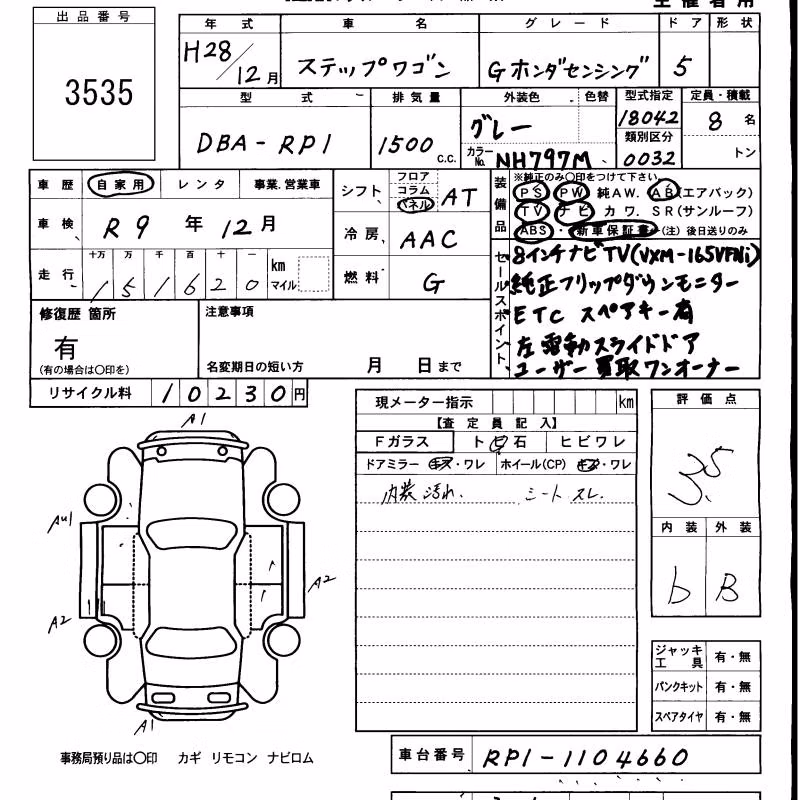 主催者用
出品番号
3535
年式 車名 グレード ドア 形状
H28/12月 ステップワゴン Gホンダセンシング 5
型式 排気量 外装色 色替 型式指定 定員・積載
DBA-RP1 1500 c.c. グレー 18042 8名
カラーNo. NH797M 類別区分 0032 トン
車歴 自家用 レンタ 事業.営業車
シフト フロア コラム パネル AT
車検 R9年12月
冷房 AAC
走行 十万 万 千 百 十 km マイル
151620
燃料 G
装備品 ※純正のみ〇印をつけて下さい
PS PW 純AW. AB(エアバック)
TV ナビ カワ. SR(サンルーフ)
ABS・新車保証書(注)後日送りのみ
セールスポイント
8インチナビTV(VXM-165VFNi)
純正フリップダウンモニター
ETC スペアキー有
左電動スライドドア
ユーザー買取ワンオーナー
修復歴 箇所
有
(有の場合は〇印を)
注意事項
名変期日の短い方 月 日まで
リサイクル料 10230円
現メーター指示 km
【査定員記入】
Fガラス トビ石 ヒビワレ
ドアミラー キズ・ワレ ホイール(CP) キズ・ワレ
内装 汚れ. シート スレ.
評価点
3.5
内装 外装
b B
A1
AU1
A2
A2
A1
ジャッキ工具 有・無
パンクキット 有・無
スペアタイヤ 有・無
事務局預り品は〇印 カギ リモコン ナビロム
車台番号 RP1-1104660